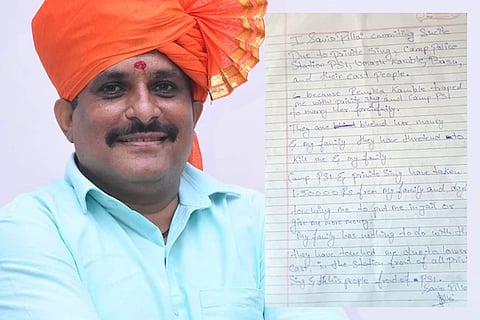 I Savio Pillai commiting Sucite
Due to private Sing, Camp Police
Station PSI, Kamble,
and their cast people.
because Renuka Kamble traped
me with private sing and camp PSI
to marry her forcefully.
They are blackd more money
& my family they have threted to
kill me & my family
Camp PSI & private Sing have taken
1,500000 RS from my family and
me to put me in jail or
give my more money.
My family has nothing to do with
they have touched me due to lower
Cast in the Station front of all
Sing & people front of PSI.
Savio Pillai